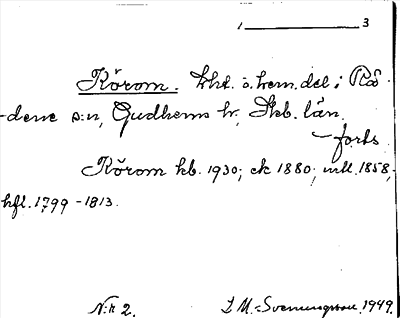 1 ———— 3
Körom. khf. o. hem. del i Rå-
-dene s:n, Gudhems hr, Skb. län.
— forts
Körom kb. 1930; ek 1880; mtl. 1858;
hfl. 1799 - 1813.
N:r 2. I. M. Svenungsson. 1949.